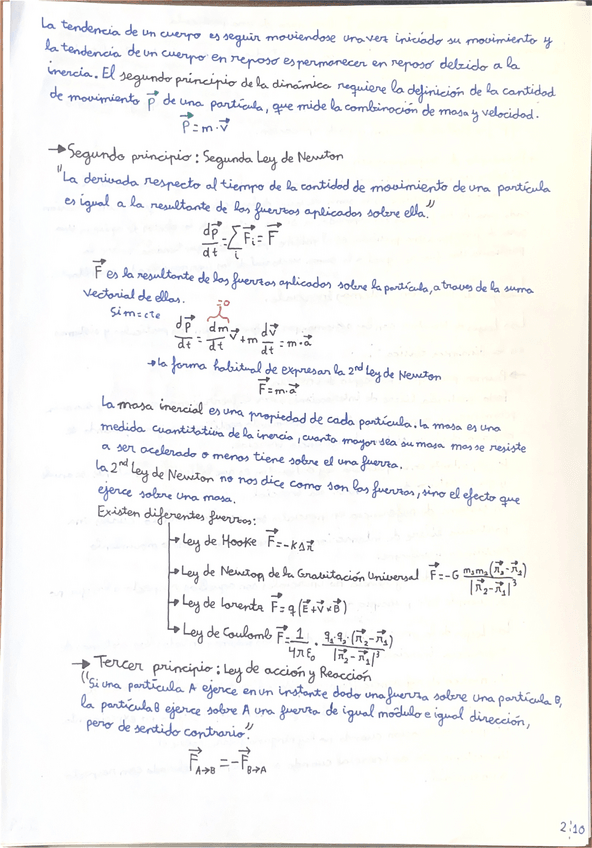 La tendencia de un cuerpo es seguir moviendose una vez iniciado su movimiento y
la tendencia de un cuerpo en reposo es permanecer en reposo debido a la
inercia. El segundo principio de la dinámica requiere la definición de la cantidad
de movimiento p⃗ de una partícula, que mide la combinación de masa y velocidad.
p⃗ = m · v⃗
→ Segundo principio: Segunda Ley de Newton
"La derivada respecto al tiempo de la cantidad de movimiento de una partícula
es igual a la resultante de las fuerzas aplicadas sobre ella."
dp⃗/dt = ∑_i F⃗_i = F⃗
F⃗ es la resultante de las fuerzas aplicadas sobre la partícula, a traves de la suma
vectorial de ellas.
=0
Si m = cte
dp⃗/dt = dm/dt v⃗ + m dv⃗/dt = m · a⃗
→ la forma habitual de expresar la 2nd Ley de Newton
F⃗ = m · a⃗
La masa inercial es una propiedad de cada partícula. La masa es una
medida cuantitativa de la inercia, cuanta mayor sea su masa mas se resiste
a ser acelerado o menos tiene sobre el una fuerza.
La 2nd Ley de Newton no nos dice como son las fuerzas, sino el efecto que
ejerce sobre una masa.
Existen diferentes fuerzas:
→ Ley de Hooke F⃗ = -k Δr⃗
→ Ley de Newton de la Gravitación Universal F⃗ = -G m₁m₂(r⃗₂-r⃗₁)/|r⃗₂-r⃗₁|³
→ Ley de Lorentz F⃗ = q(E⃗ + v⃗ × B⃗)
→ Ley de Coulomb F⃗ = 1/4πε₀ · q₁·q₂·(r⃗₂-r⃗₁)/|r⃗₂-r⃗₁|³
→ Tercer principio: Ley de acción y Reacción
("Si una partícula A ejerce en un instante dado una fuerza sobre una partícula B,
la partícula B ejerce sobre A una fuerza de igual módulo e igual dirección,
pero de sentido contrario."
F⃗_A→B = -F⃗_B→A
2|10